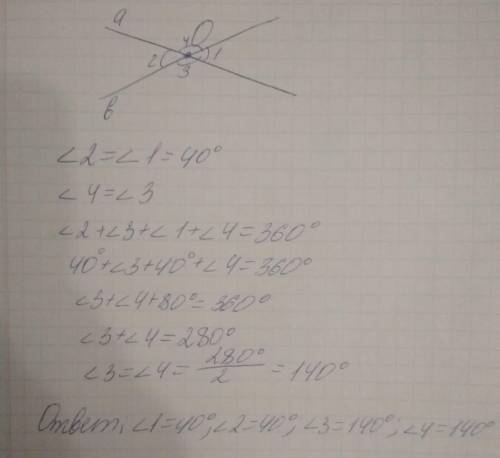 a
4 O
2 1
3
b
∠2=∠1=40°
∠4=∠3
∠2+∠3+∠1+∠4=360°
40°+∠3+40°+∠4=360°
∠3+∠4+80°=360°
∠3+∠4=280°
∠3=∠4=280°/2=140°
Ответ: ∠1=40°; ∠2=40°; ∠3=140°; ∠4=140°